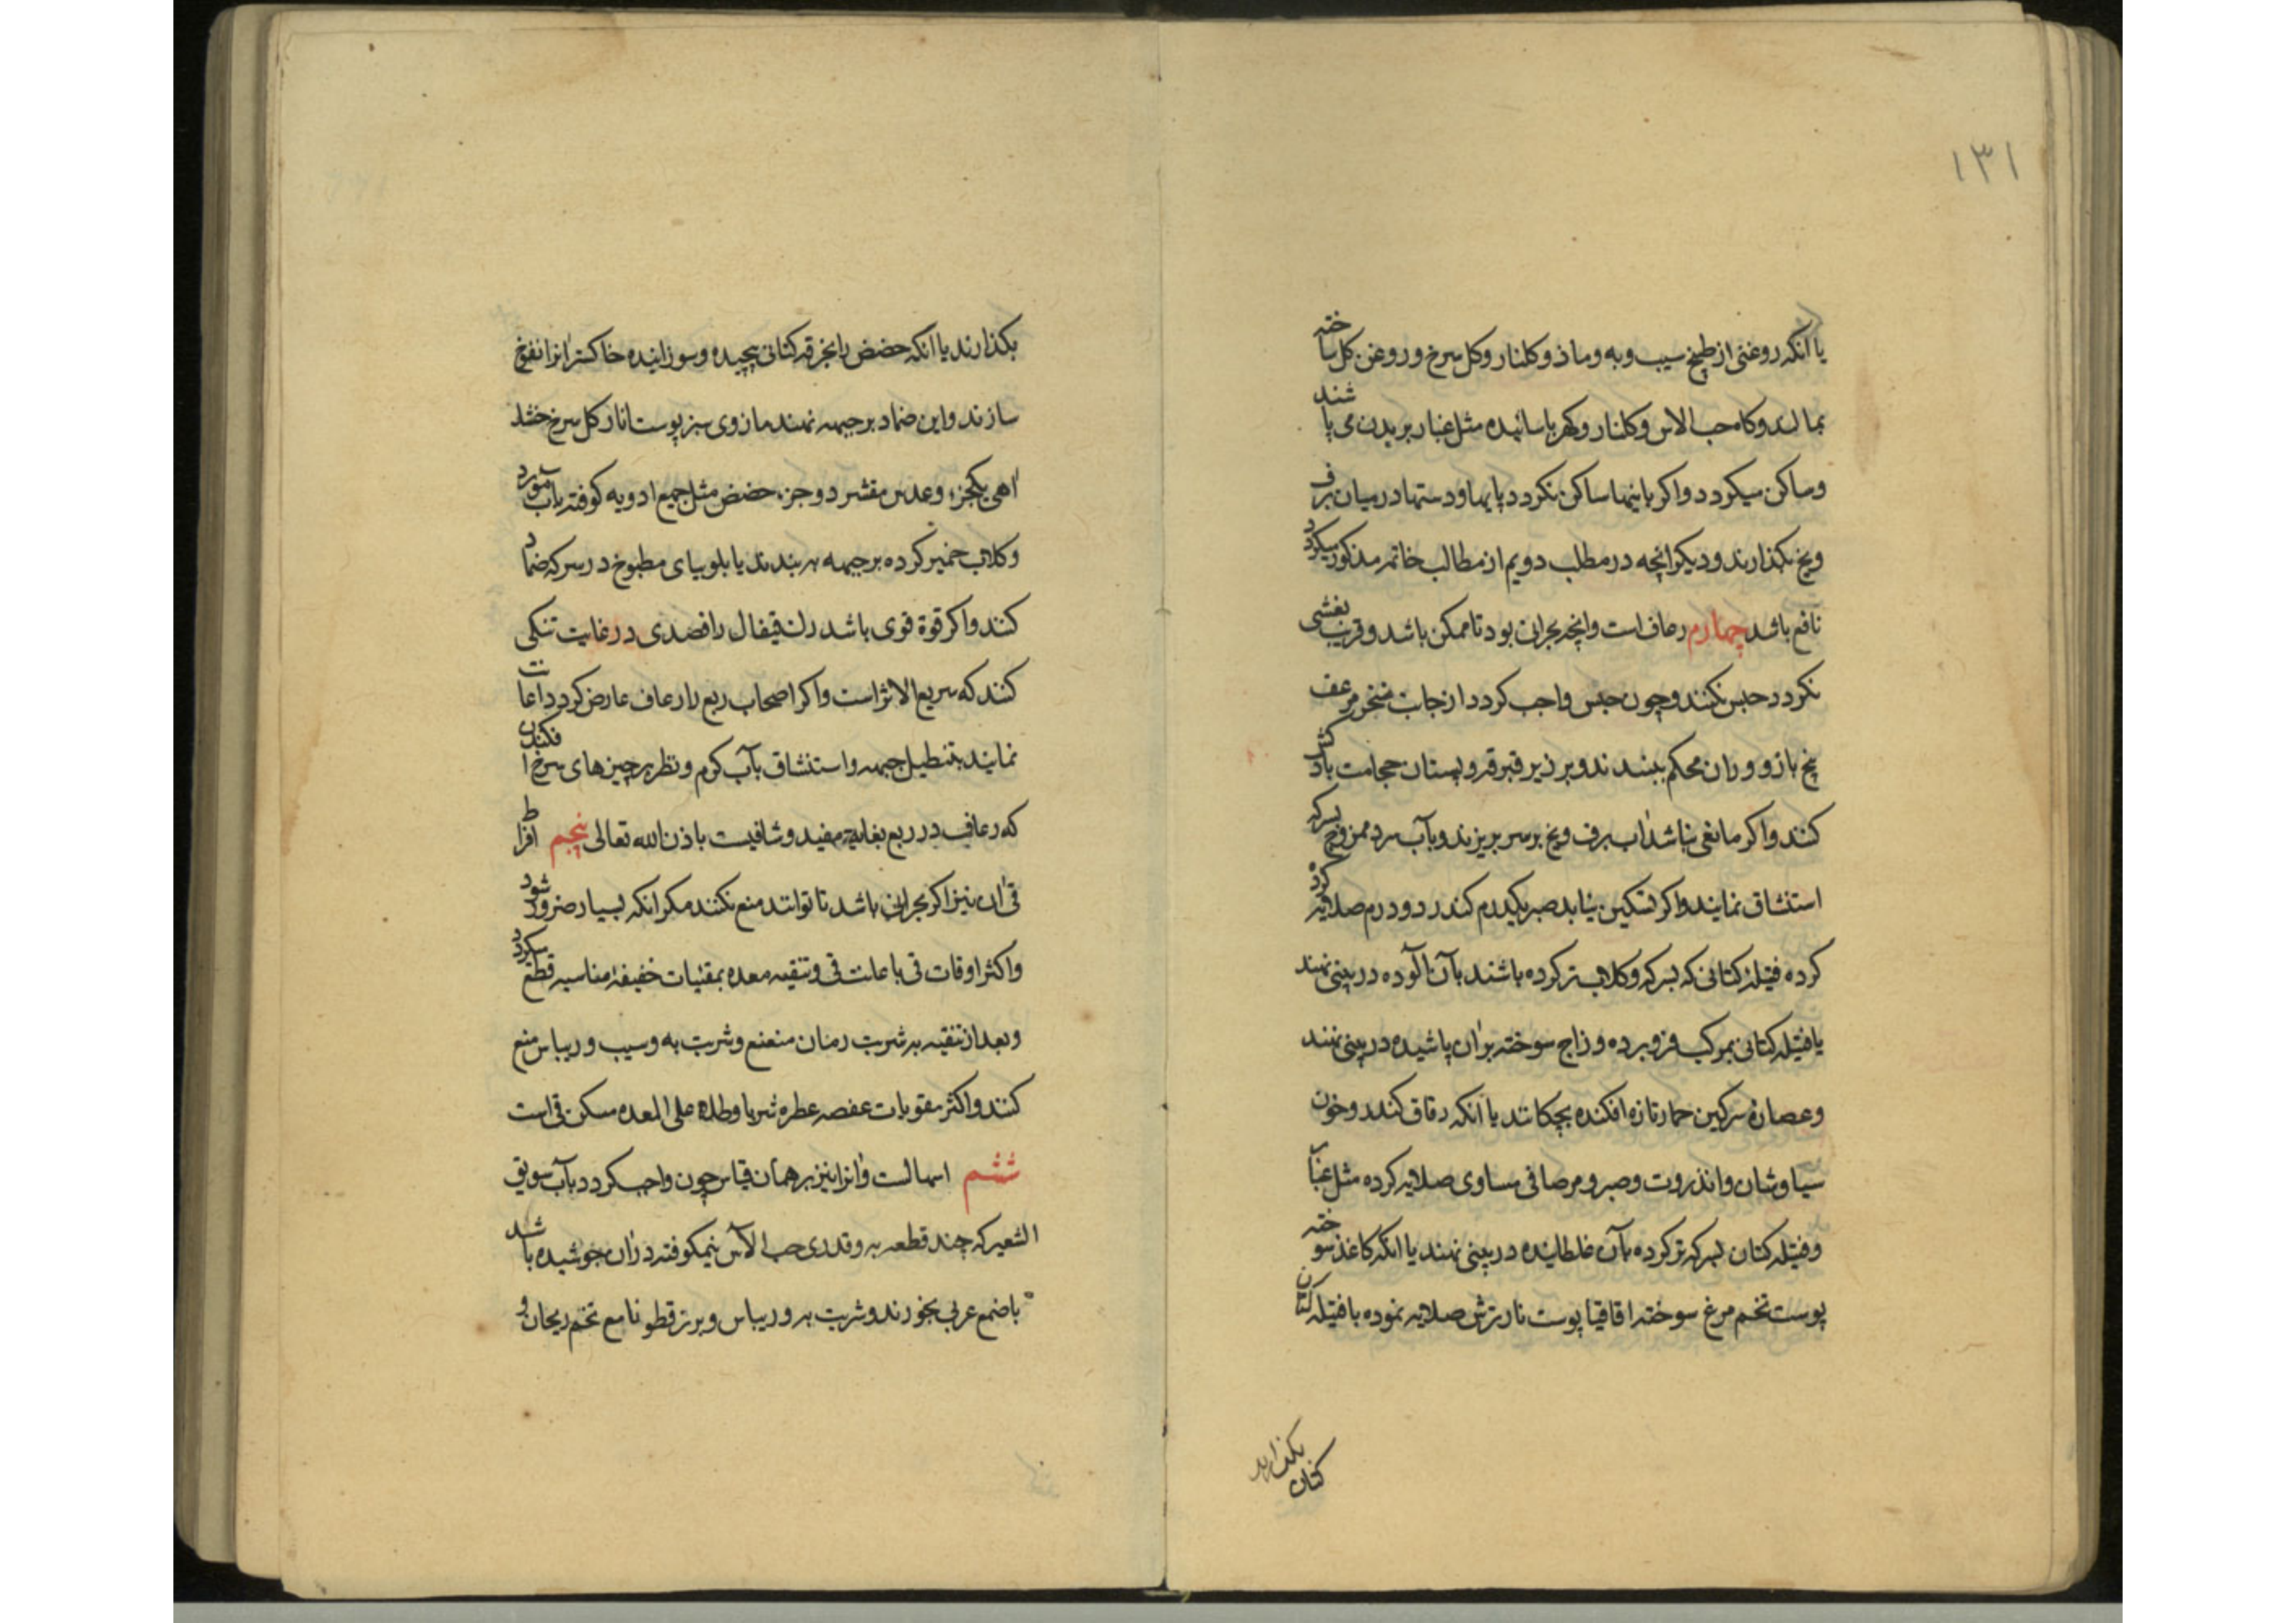 ۱۳۱
یا انکه روغنی از طبیخ سیب و به و ماذو کلنار و کل سرخ و روغن کل ساخته
بمالند و کاه حب الاس و کلنار و کهربا سائیده مثل غبار بر بدن می پاشند
و ساکن میکردد و اکر باینها ساکن نکردد پایها و دستها در میان برف
و یخ بکذارند و دیکر انچه در مطلب دویم از مطالب خاتمه مذکور میکردد
نافع باشد چهارم رعاف است و انچه بحران بود تا ممکن باشد و قریب بغشی
نکردد حبس نکنند و چون حبس واجب کردد از جانب منخر مرعف
بیخ بازو و ران محکم ببندند و بر زیر قبرقه و پستان حجامت باد کش
کنند و اکر مانعی نباشد اب برف و یخ بر سر بریزند و بآب سرد ممزوج بسرکه
استنشاق نمایند و اکر تسکین نیابد صبر یکدرم کندر دو درم صلایه کرده
کرده فتیلهٔ کتانی که بسرکه و کلاب تر کرده باشند بآن آلوده در بینی نهند
یا فتیله کتانی بمرکب فرو برده و زاج سوخته بران پاشیده در بینی نهند
و عصارهٔ سرکین حمار تازه افکنده بچکانند یا انکه دقاق کندر و خون
سیاوشان و انذروت و صبر و مر صافی مساوی صلایه کرده مثل غبار
و فتیله کتان بسرکه تر کرده بآن غلطانیده در بینی نهند یا انکه کاغذ سوخته
پوست تخم مرغ سوخته اقاقیا پوست نار ترش صلایه نموده با فتیله کتان
بکذارند
کتان
بکذارند یا انکه حضض را بخرقه کتانی پیچیده و سوزانیده خاکستر انرا نفوخ
سازند و این ضماد بر جبهه نهند مازوی سبز پوست انار کل سرخ خشک
اهی یکجزء و عدس مقشر دو جزء حضض مثل جمیع ادویه کوفته بآب مورد
و کلاب خمیر کرده بر جبهه بر بندند یا بلوبیای مطبوخ در سرکه ضماد
کنند و اکر قوة قوی باشد رک قیفال را فصدی در غایت تنکی
کنند که سریع الاثر است و اکر اصحاب ربع را رعاف عارض کردد اعانت
نمایند بتنطیل جبهه و استنشاق بآب کرم و نظر بر چیزهای سرخ افکندن
که رعاف در ربع بغایة مفید و شافیست باذن الله تعالی پنجم افراط
قی ان نیز اکر بحران باشد تا توانند منع نکنند مکر انکه بسیار ضرور شود
و اکثر اوقات قی باعانت قی و تنقیه معده بمقئیات خفیفهٔ مناسبه قطع میکردد
و بعد از تنقیه بر شربت رمان منعنع و شربت به و سیب و ریباس منع
کنند و اکثر مقویات عفصه عطره شربا و طلاء علی المعده مسکن قی است
ششم اسهالست و انرا نیز بر همان قیاس چون واجب کردد بآب سویق
الشعیر که چند قطعه به و قدری حب الآس نیمکوفته دران جوشیده باشد
با ضمع عربی بخورند و شربت به و ریباس و برز قطونا مع تخم ریحان و